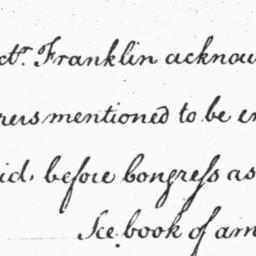 ctr. Franklin acknow
rers mentioned to be en
id, before Congress as
See book of am